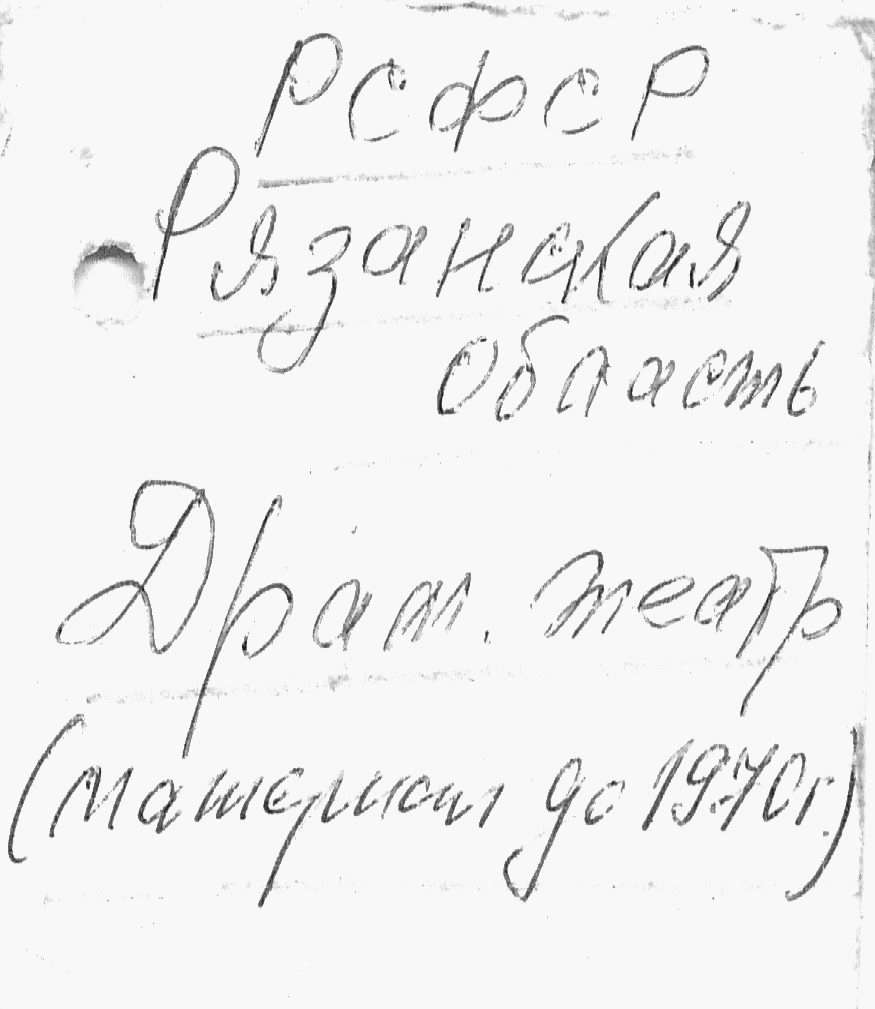 РСФСР
Рязанская
область
Драм. театр
(материал до 1970г.)